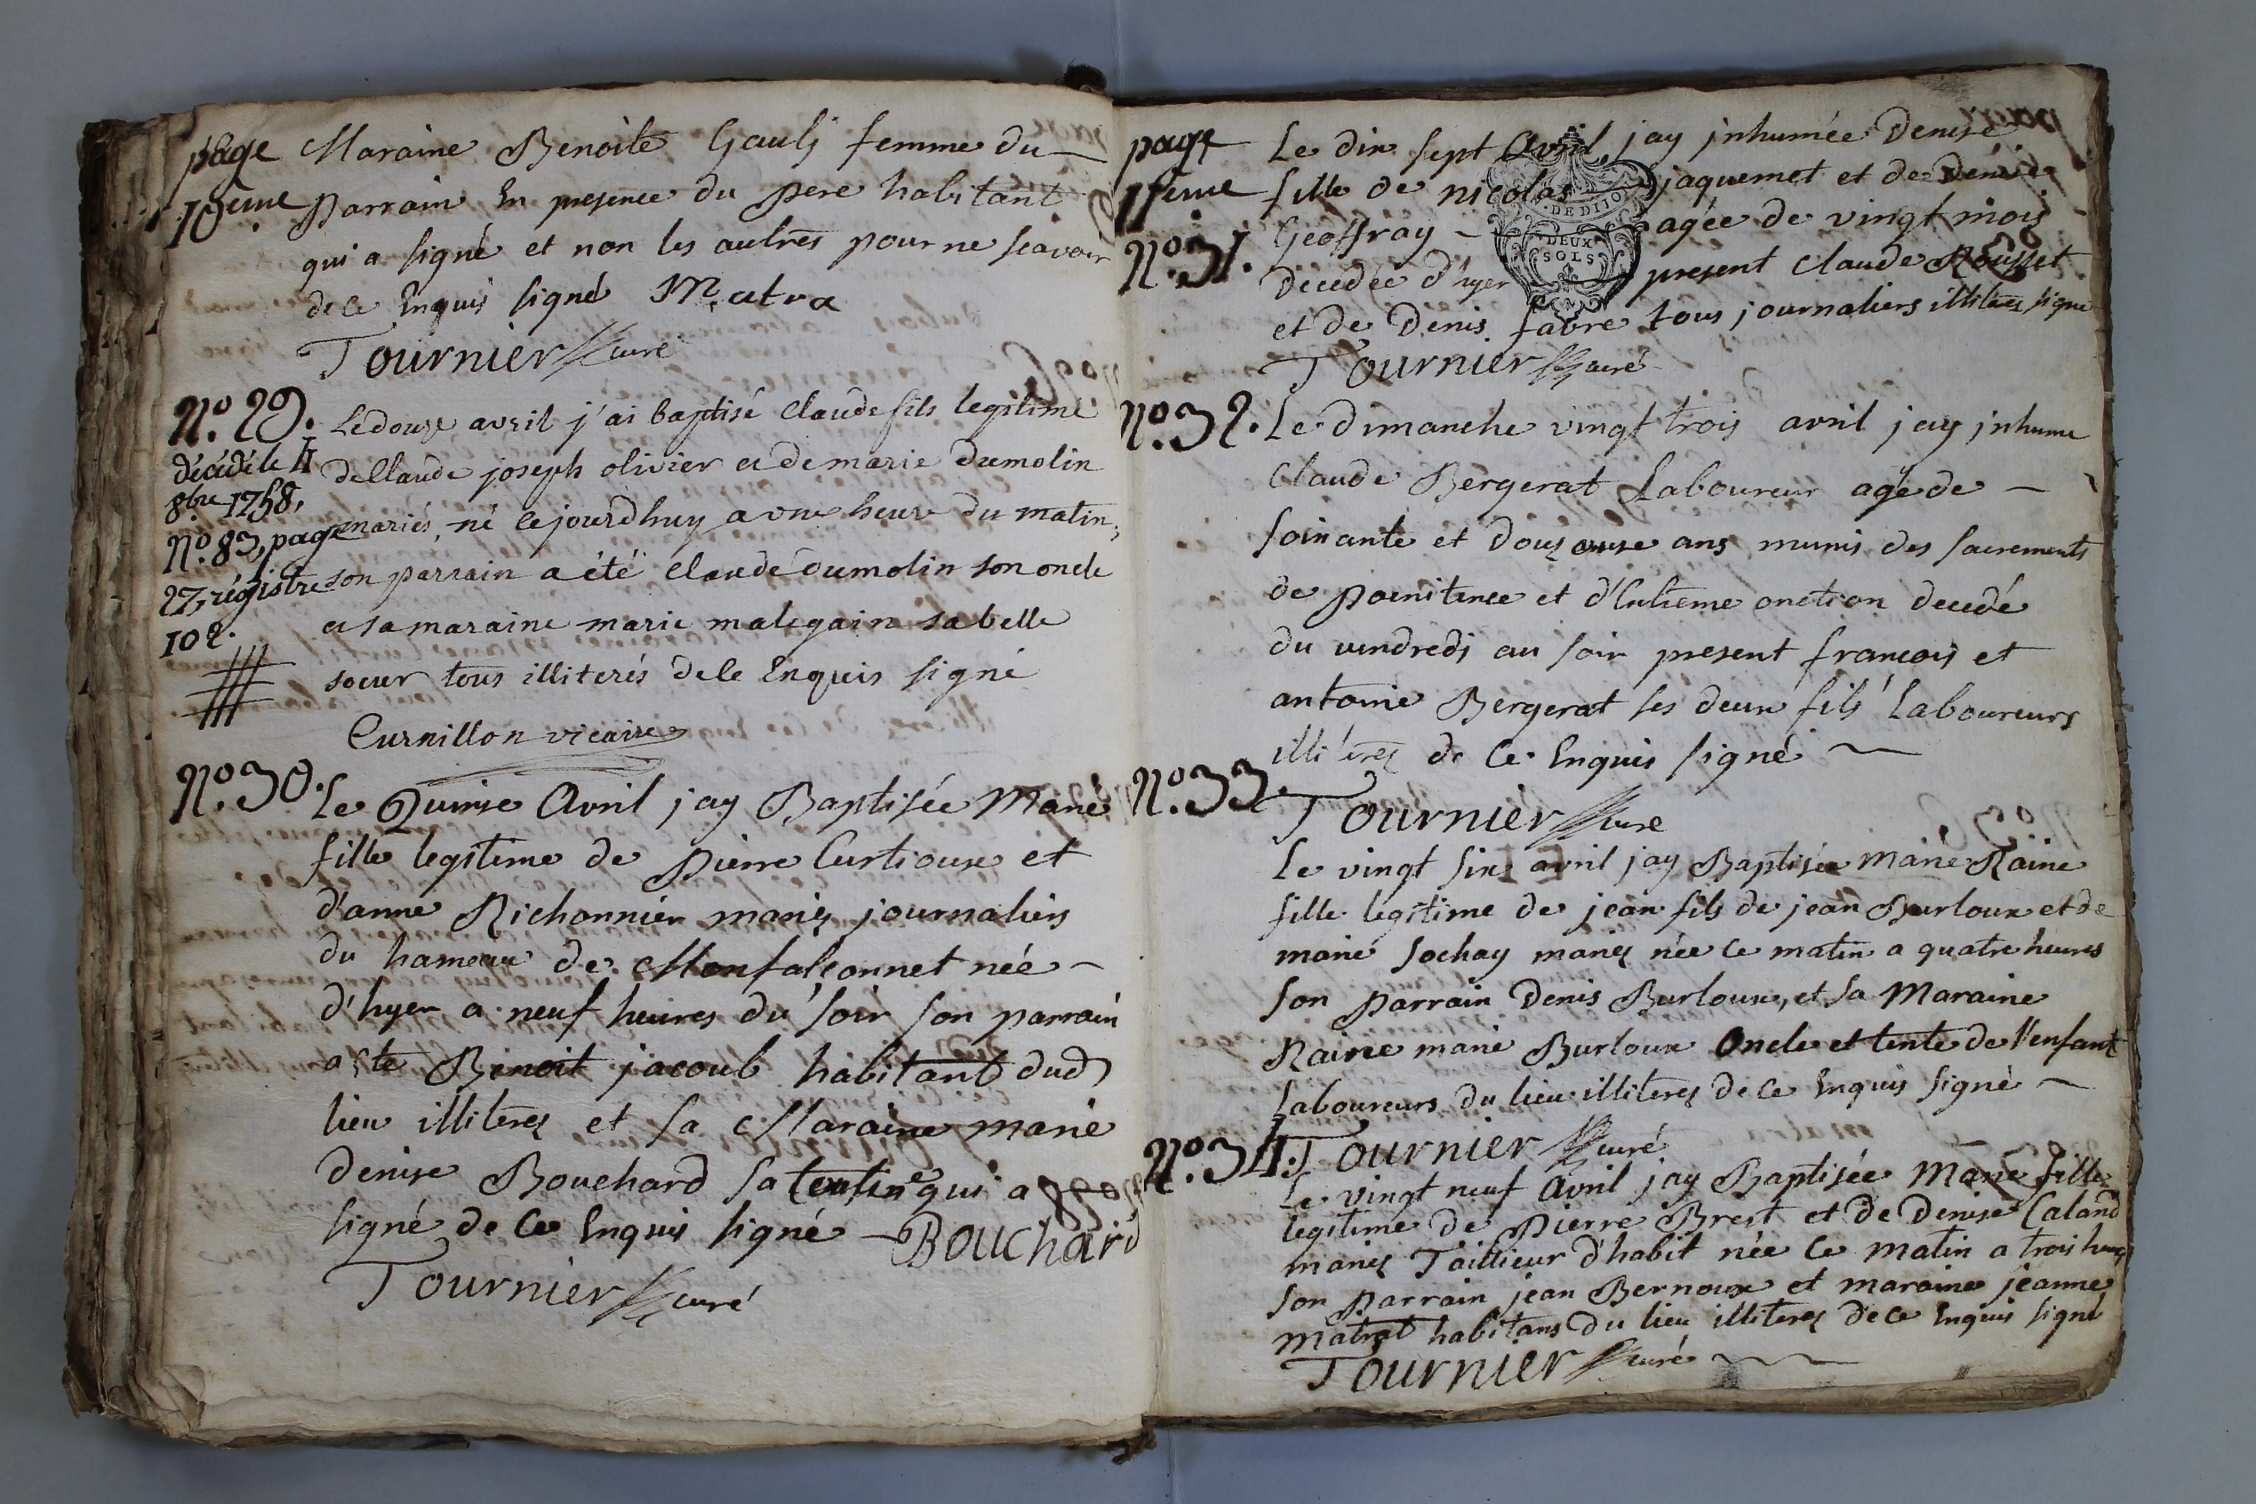 page
10eme
Maraine Benoite Gaulj femme du
Parrain En presence du pere habitant
qui a signé et non les autres pour ne scavoir
de ce Enquis signé Matra
Tournier curé
No. 29.
décédé le 4
8bre 1758,
No. 83, page
27, régistre
102.
Le douze avril j'ai baptisé claude fils legitime
de Claude joseph olivier et de marie dumolin
mariés, né cejourdhuy a une heure du matin,
son parrain a été claude dumolin son oncle
et sa maraine marie malegain sa belle
soeur tous illiterés de ce Enquis signé
Curnillon vicaire
No. 30.
Le Quinse Avril jay Baptisée Marie
fille legitime de Pierre Curtioux et
d'anne Richonnier mariez journaliers
du hameau de Monfalconnet née
d'hyer a neuf heures du soir son parrain
a ete Benoit jacoub habitant dud
lieu illiterez et sa Maraine marie
denise Bouchard sa tentine qui a
signé de ce Enquis signé Bouchard
Tournier curé
page
11eme
No. 31.
Le dix sept Avril, jay jnhumée Denise
fille de nicolas jaquemet et de Denise
Geoffray agée de vingt mois
Decedée d'hyer present claude Rousset
et de Denis fabre tous journaliers illiterez signé
DE DIJO
DEUX
SOLS
Tournier curé
No. 32.
Le dimanche vingt trois avril jay jnhume
Claude Bergerat Laboureur agé de
soixante et douz ans munis des sacrements
de poenitence et d'Extreme onction decedé
du vendredi au soir present francois et
antoine Bergerat ses deux fils Laboureurs
illiterez de ce Enquis signé
No. 33
Tournier curé
Le vingt six avril jay Baptisée Marie Raine
fille legitime de jean fils de jean Burloux et de
marie Sochay mariez née ce matin a quatre heures
son parrain Denis Burloux, et sa Maraine
Raine marie Burloux Oncle et tente de l'enfant
Laboureurs du lieu illiterez de ce Enquis signé
No. 34.
Tournier curé
Le vingt neuf Avril jay Baptisée Marie fille
legitime de Pierre Brest et de Denise Caland
mariez Taillieur d'habit née ce matin a trois heures
son parrain jean Bernoux et maraine jeanne
matrat habitans du lieu illiterez de ce Enquis signé
Tournier curé